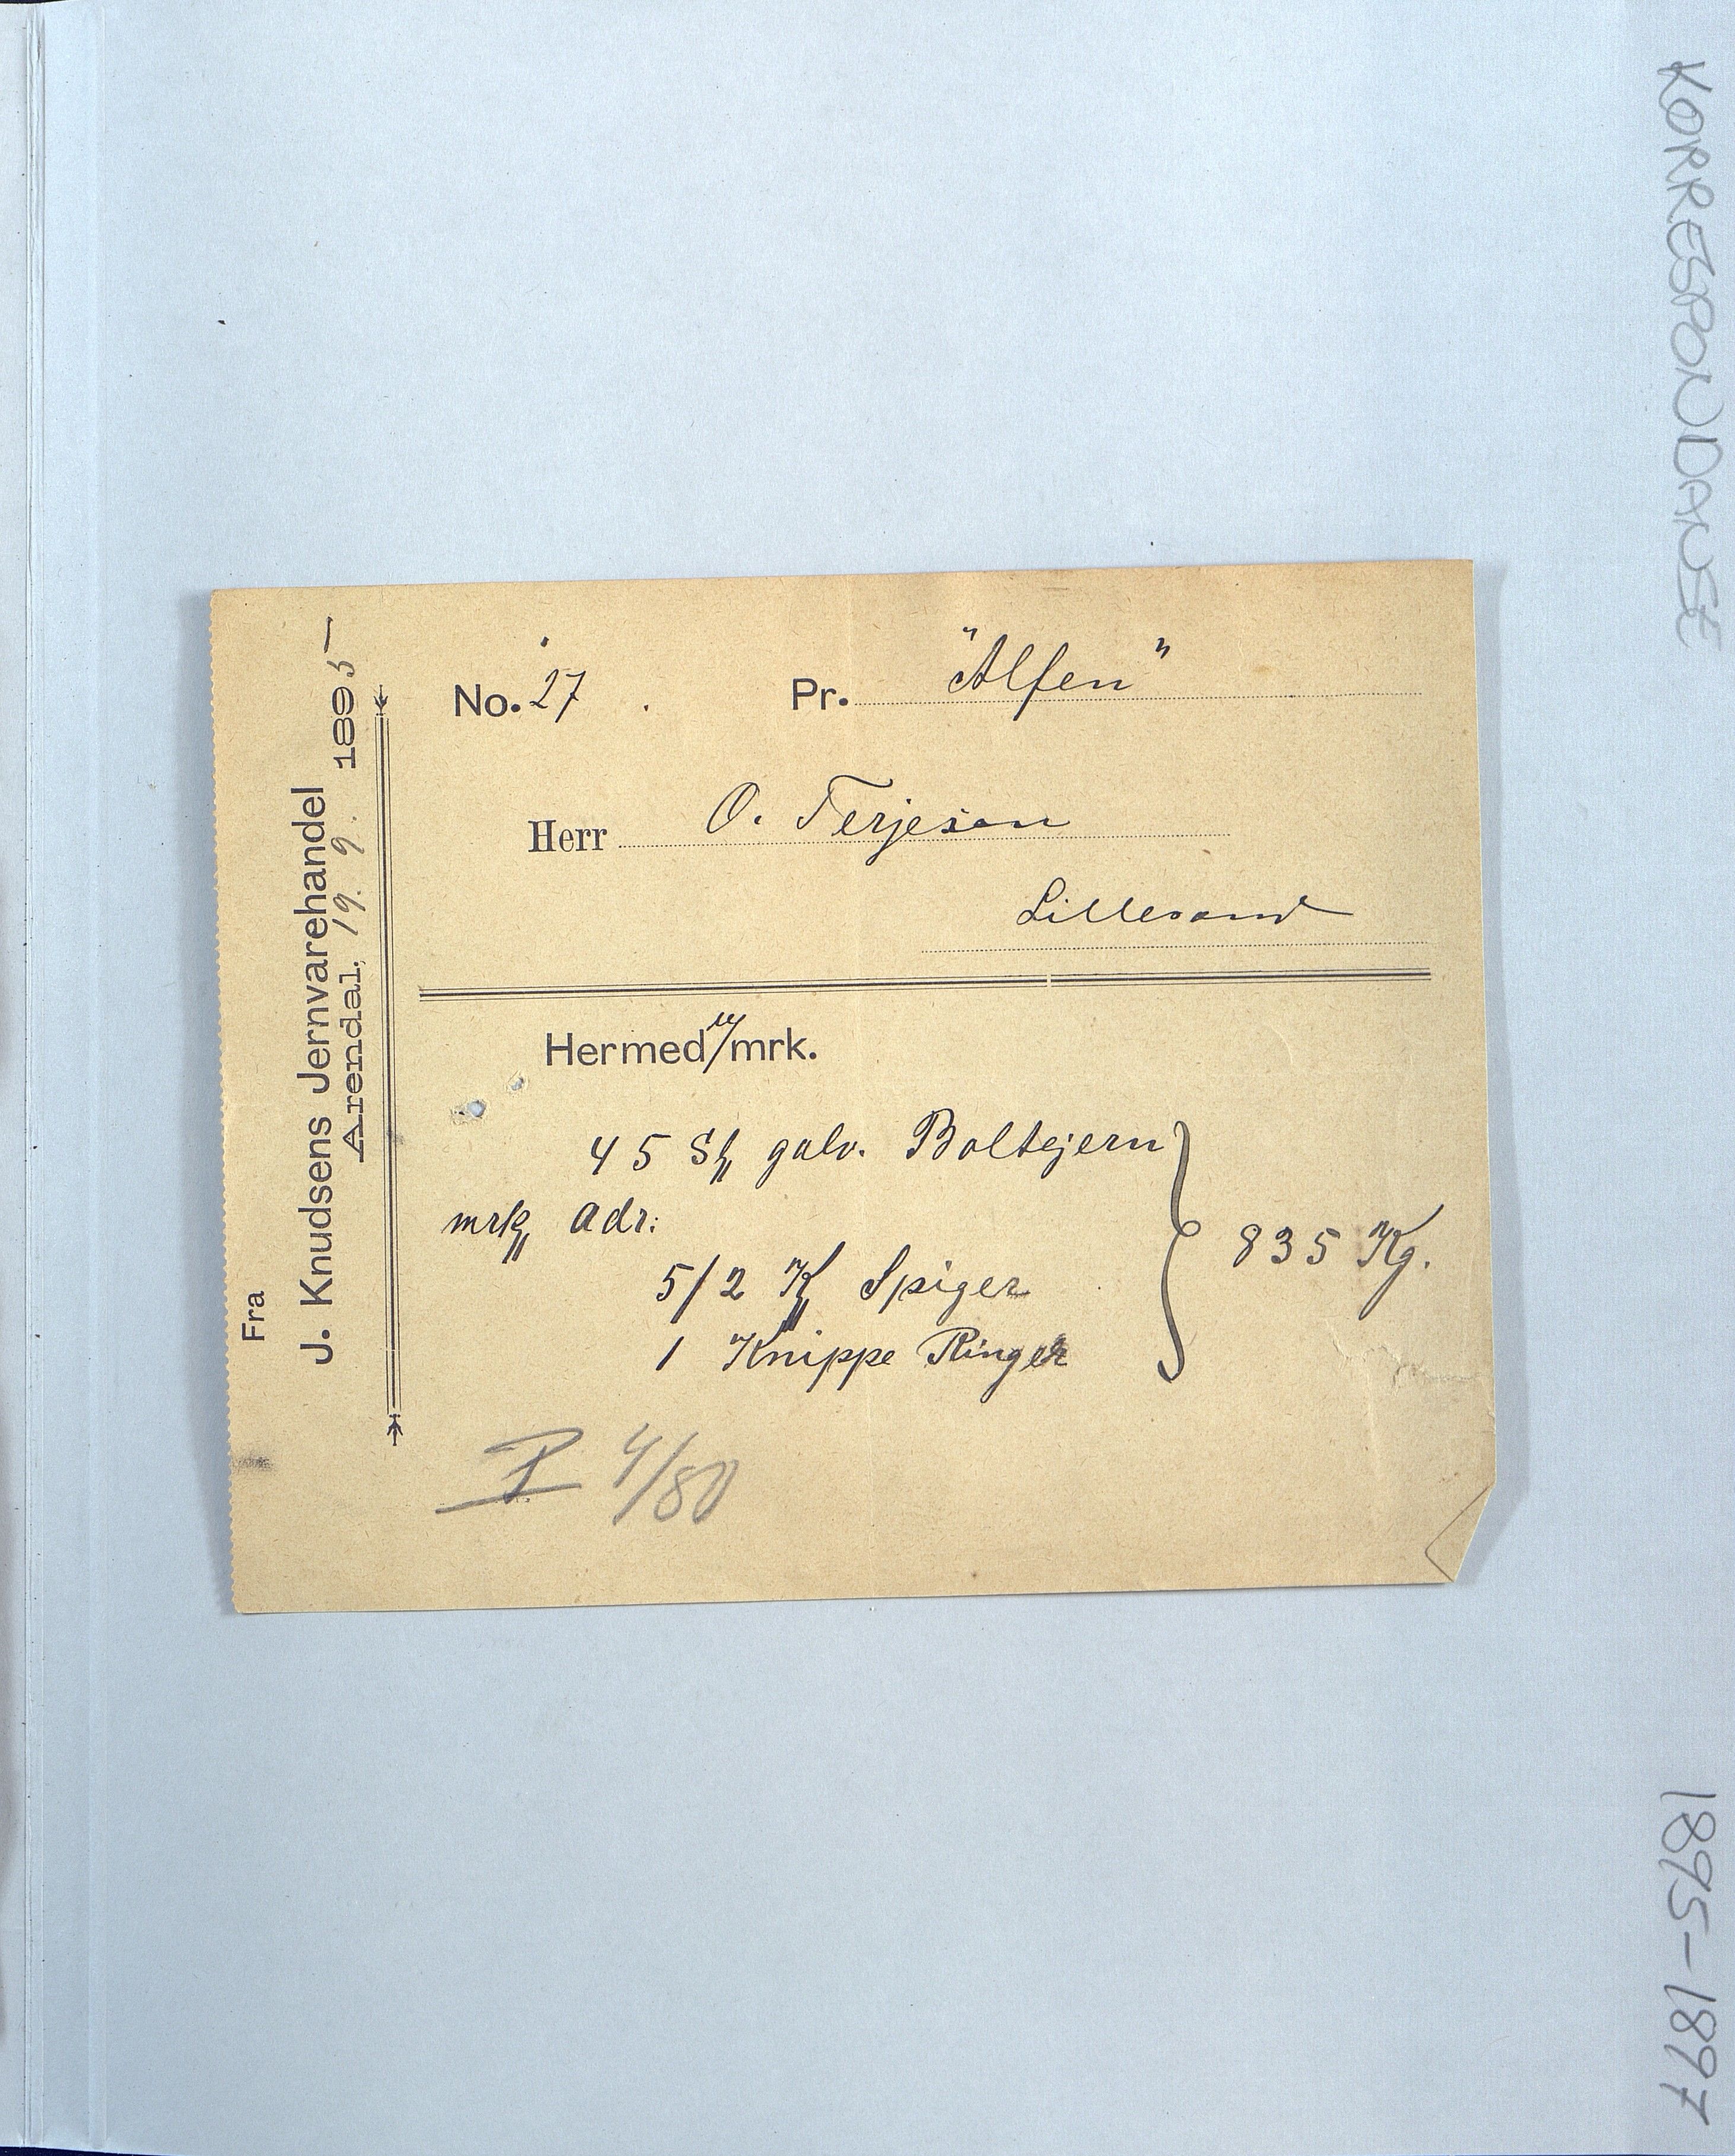 KORRESPONDANSE
1895-1897
Fra
J. Knudsens Jernvarehandel
Arendal, 19. 9. 1895
No. 27 Pr. "Alfen"
Herr O. Terjesen
Lillesand
Hermed u/mrk.
45 St galv. Boltejern
mrk Adr:
5/2 K Spiger
1 Knippe Ringer
835 Kg.
I 4/80